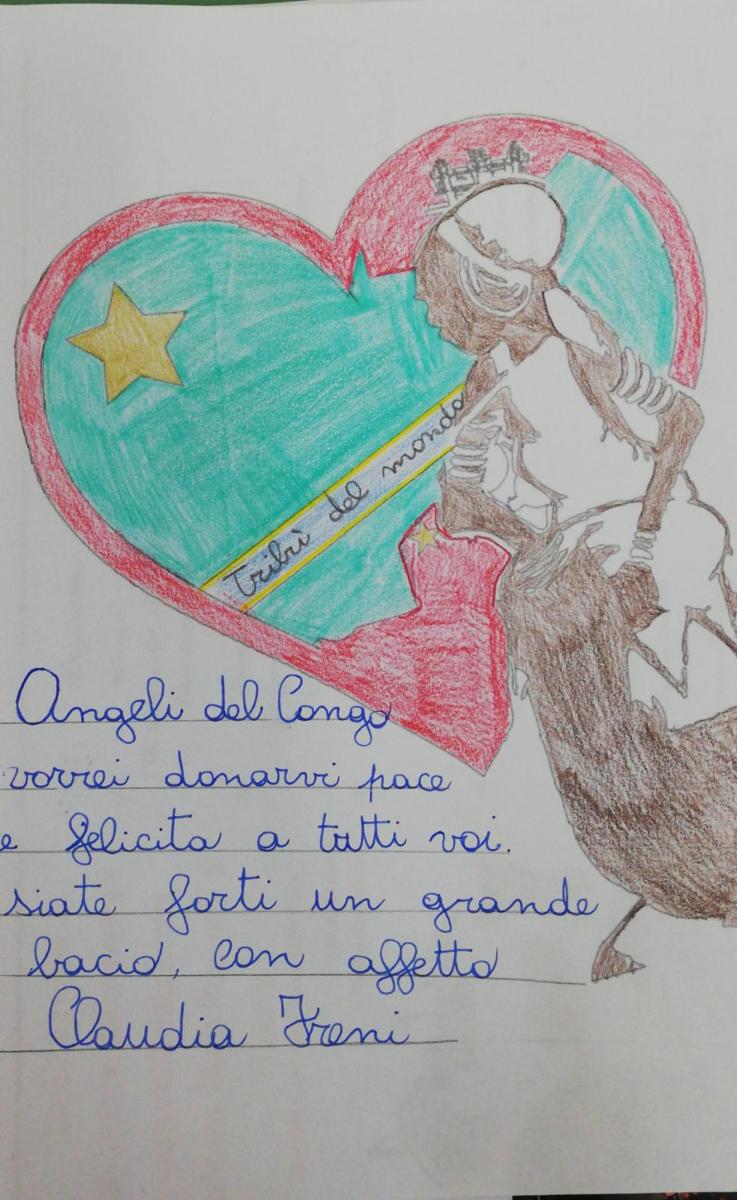 tribù del mondo
Angeli del Congo
vorrei donarvi pace
e felicita a tutti voi.
siate forti un grande
bacio, con affetto
Claudia Freni